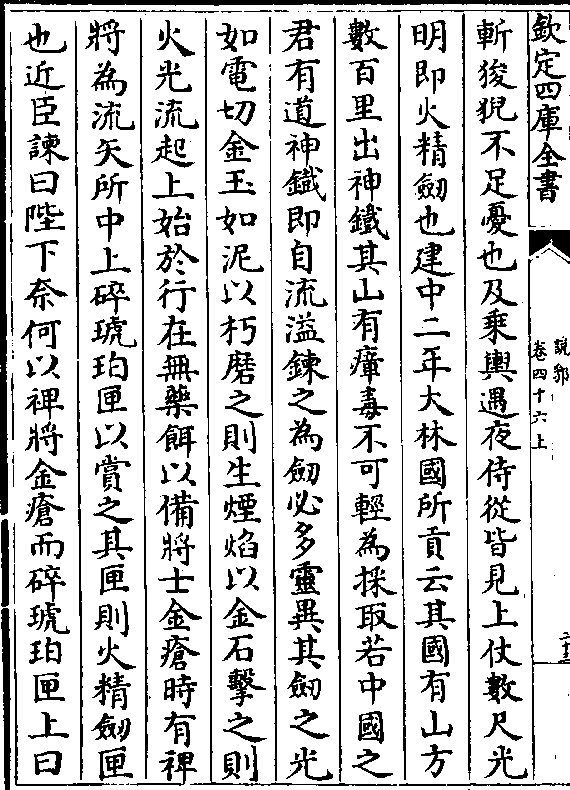 欽定四庫全書
說郛
卷四十六上
斬狻猊不足憂也及乘輿遇夜侍從皆見上仗數尺光
明即火精劒也建中二年大林國所貢云其國有山方
數百里出神鐵其山有瘴毒不可輕為採取若中國之
君有道神鐵即自流溢鍊之為劒必多靈異其劒之光
如電切金玉如泥以朽磨之則生煙焰以金石擊之則
火光流起上始於行在無藥餌以備將士金瘡時有裨
將為流矢所中上碎琥珀匣以賞之其匣則火精劒匣
也近臣諫曰陛下奈何以裨將金瘡而碎琥珀匣上曰